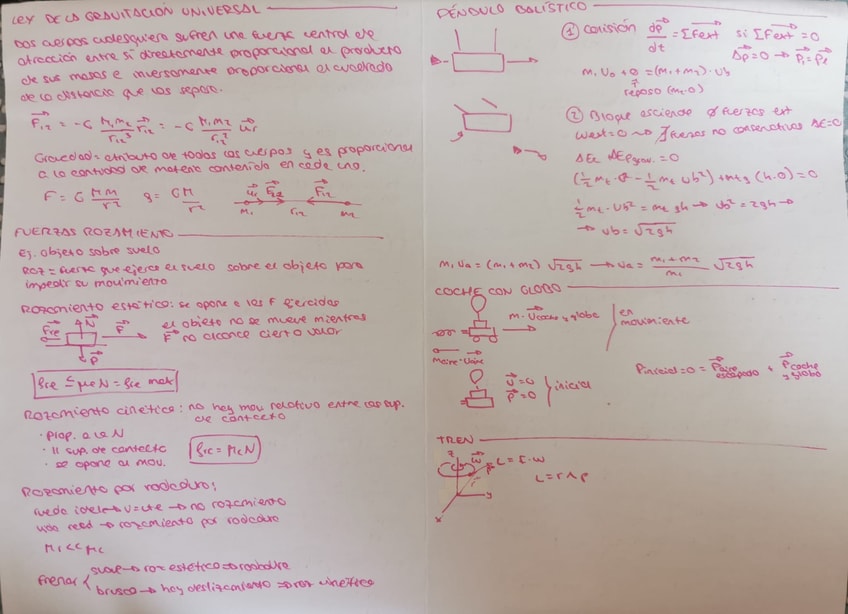 LEY DE LA GRAVITACIÓN UNIVERSAL
Dos cuerpos cualesquiera sufren una fuerza central de
atracción entre sí directamente proporcional al producto
de sus masas e inversamente proporcional al cuadrado
de la distancia que los separa.
F₁₂ = -G M₁M₂/r₁₂³ r₁₂ = -G M₁M₂/r₁₂² ur
Gravedad = atributo de todos los cuerpos y es proporcional
a la cantidad de materia contenida en cada uno.
F = G M.m/r² g = GM/r²
m₁ r₁₂ m₂ F₁₂
FUERZAS ROZAMIENTO
Ej. objeto sobre suelo
Roz = fuerza que ejerce el suelo sobre el objeto para
impedir su movimiento
Rozamiento estático: se opone a las F ejercidas
el objeto no se mueve mientras
F no alcance cierto valor
Fre N F P
fre ≤ μe N = fre max
Rozamiento cinético: no hay mov relativo entre las sup.
de contacto
· Prop. a la N
· || sup. de contacto
· se opone al mov.
frc = μc N
Rozamiento por rodadura:
rueda ideal → v = cte → no rozamiento
rueda real → rozamiento por rodadura
μr << μc
Frenar { suave → roz estático ⇒ rodadura
brusco → hay deslizamiento ⇒ roz cinético
PÉNDULO BALÍSTICO
① Colisión dp/dt = ΣFext si ΣFext = 0
Δp = 0 → Pi = Pf
m₁ v₀ + 0 = (m₁ + m₂) · vb
reposo (m₂·0)
② Bloque asciende ∅ fuerzas ext
Wext = 0 ∄ fuerzas no conservativas ΔE = 0
ΔEc ΔEp grav. = 0
(½ mt · 0² - ½ mt vb²) + mt g (h-0) = 0
½ mt · vb² = mt gh → vb² = 2gh →
→ vb = √2gh
m₁ va = (m₁ + m₂) √2gh → va = m₁+m₂/m₁ √2gh
COCHE CON GLOBO
m · v coche y globo } en
movimiento
Maire · Vaire
v = 0
p = 0 } inicial
Pinicial = 0 = Paire escapado + Pcoche y globo
TREN
z w L = I · w
L = r ∧ p
x y